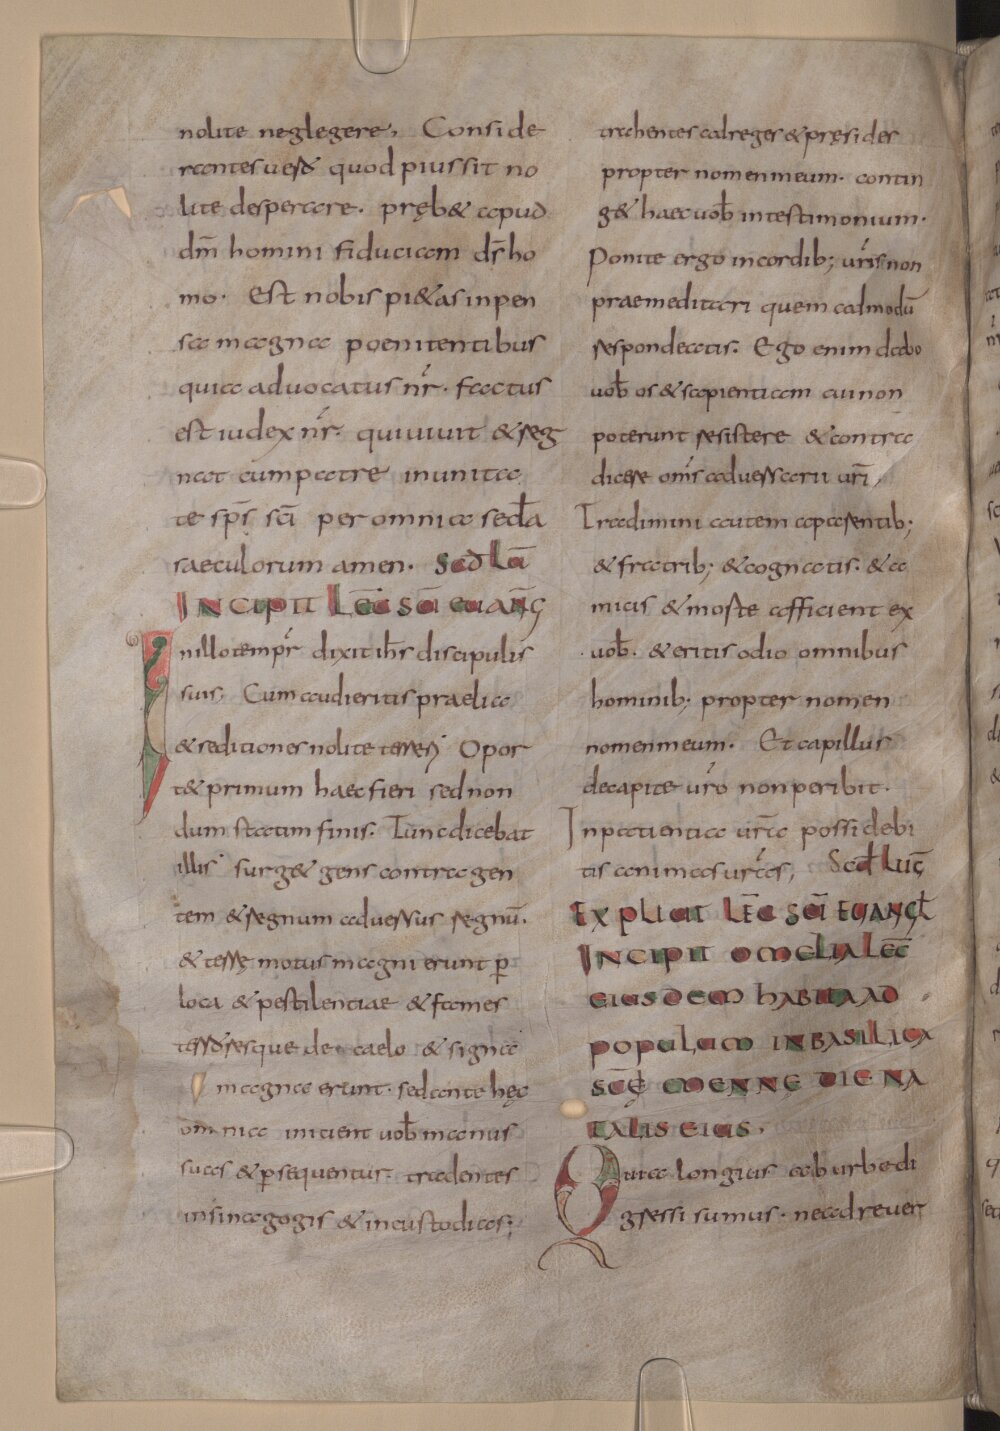 nolite neglegere, Conside
rantes uestr̄ quod pius sit no
lite desperare. pręb& apud
dm̄ homini fiduciam dr̄ ho
mo. Est nobis pi&as in pen
sa magna poenitentibus
quia advocatus nr̄. factus
est iudex nr̄. qui uiuit & reg
nat cum patre in unita
te sp̄s sc̄i per omnia secl̄a
saeculorum amen. Scd Lū
INCIPIT LĒC SC̄I EUANḠ
In illo tempr̄ dixit ih̄s discipulis
suis, Cum audieritis praelia
& seditiones nolite terreri Opor
t& primum haec fieri sed non
dum statim finis. Tunc dicebat
illis surg& gens contra gen
tem & regnum adversus regnū.
& terrę motus magni erunt p̄
loca & pestilentiae & fames
terroresque de caelo & signa
magna erunt. sed ante hęc
omnia inicient uob̄ manus
suas & p̄sequentur tradentes
in sinagogis & in custodias;
trahentes ad reges & pręsides
propter nomen meum. contin
g& haec uob̄ in testimonium.
Ponite ergo in cordib; ur̄is non
praemeditari quem admodū
respondeatis. Ego enim dabo
uob̄ os & sapientiam cui non
poterunt resistere & contra
dicere om̄s adversarii ur̄i,
Tradimini autem a parentib;
& fratrib; & cognatis. & a
micis & morte afficient ex
uob̄. & eritis odio omnibus
hominib; propter nomen
nomen meum. Et capillus
de capite ur̄o non peribit.
In patientia ur̄a possidebi
tis animas ur̄as, Scd Luc̄
EXPLICIT LĒC SC̄I EUANGL̄
INCIPIT OMELIA LĒC
EIUSDEM HABITA AD
POPULUM IN BASILICA
SC̄Ę MENNĘ DIE NA
TALIS EIUS.
Quia longius ab urbe di
gressi sumus. ne ad rever